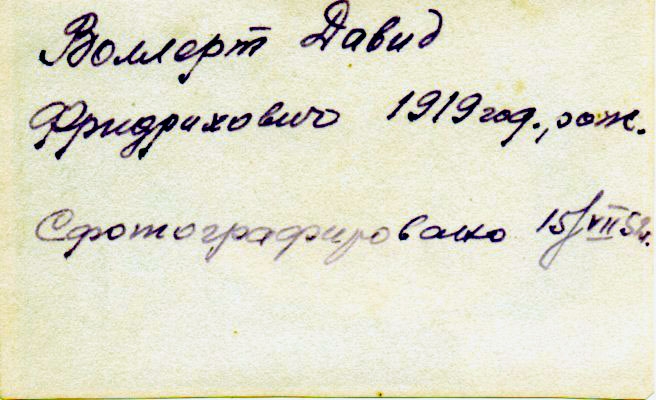 Воллерт Давид
Фридрихович 1919 год., рож.
Сфотографировано 15/VII 52г.